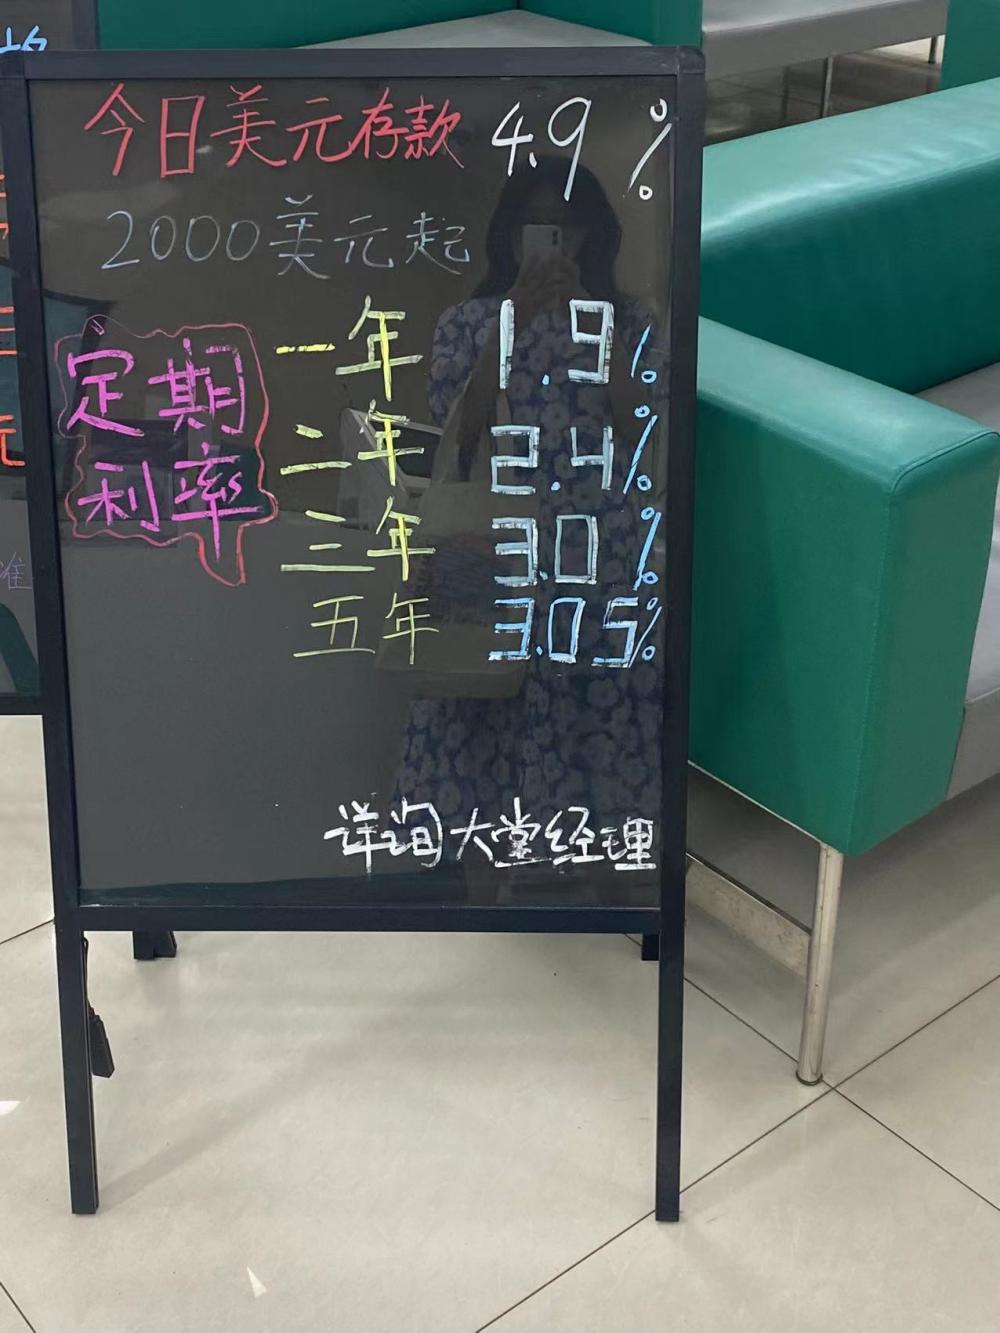 今日美元存款 4.9%
2000美元起
定期
利率
一年 1.9%
二年 2.4%
三年 3.0%
五年 3.05%
详询大堂经理
元
准